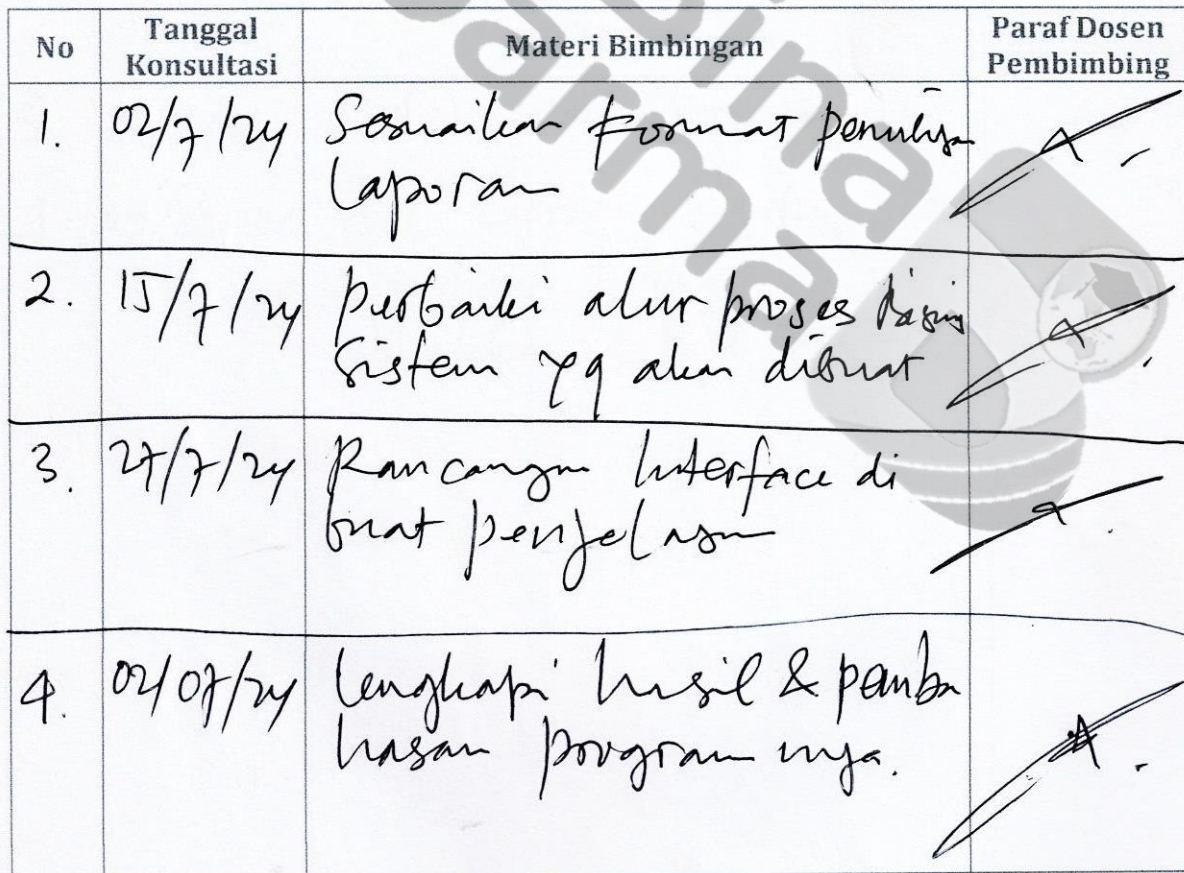 Bina
Darma
No Tanggal Konsultasi Materi Bimbingan Paraf Dosen Pembimbing
1. 02/7/24 Sesuaikan Format penulisan
Laporan
2. 15/7/24 perbaiki alur proses
Sistem yg akan dibuat
3. 27/7/24 Rancangan Interface di
buat penjelasan
4. 02/07/24 lengkapi hasil & pemba
hasan program nya.